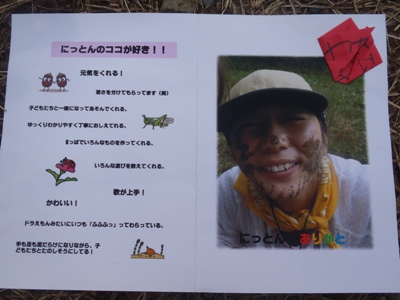 にっとんのココが好き！！
元気をくれる！
若さを分けてもらってます（笑）
子どもたちと一緒になってあそんでくれる。
ゆっくりわかりやすく丁寧におしえてれる。
まっぱでいろんなものを作ってくれる。
いろんな遊びを教えてくれる。
歌が上手！
かわいい！
ドラえもんみたいにいつも「ふふふっ」ってわらっている。
手も足も泥だらけになりながら、子
どもたちとたのしそうにしてる！
にっとん ありがと